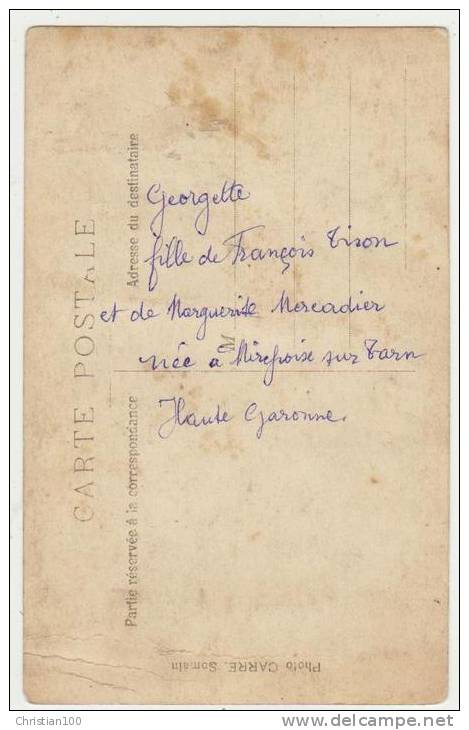 CARTE POSTALE
Partie réservée à la correspondance
Adresse du destinataire
M
Georgette
fille de François Tison
et de Marguerite Mercadier
née a Mirepoise sur Tarn
Haute Garonne.
Photo CARRE. Somain
Christian100
www.delcampe.net